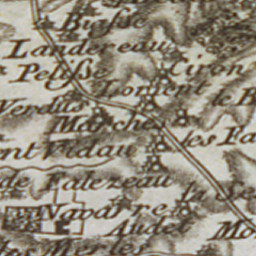 Busse
Landereau
Pelisse
Ciron
Loment
Verdus
le B
Marche
nt Vidau
les Fa
de Palezeau
la Se
Navarre
Audet
Mo
los Merles